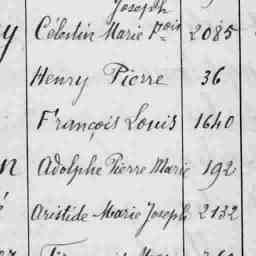 Joseph
Célestin Marie Fois 2085
Henry Pierre 36
François Louis 1640
Adolphe Pierre Marie 192
Aristide Marie Joseph 2132